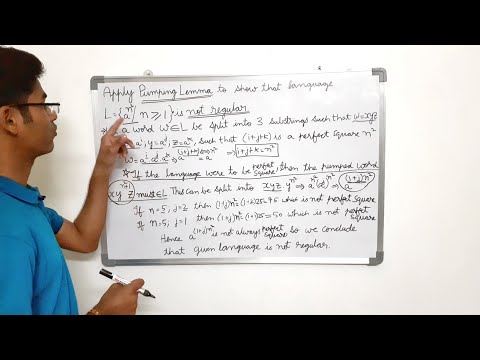 Apply Pumping Lemma to show that language
L = {a^n² | n ≥ 1} is not regular
a word w ∈ L be split into 3 substrings such that w = xyz
y = a^j, z = a^k, such that (i+j+k) is a perfect square n²
w = a^i a^j a^k = a^(i+j+k) = a^n² ⇒ i+j+k = n²
If the language were to be perfect square, then the pumped word
must ∈ L This can be split into xyz.
If n=5, j=2 then which is not perfect square
If n=5, j=1 then (1+j)n² = (1+1)25 = 50 which is not perfect square
Hence a^(1+j)n² is not always perfect square so we conclude
that given language is not regular.